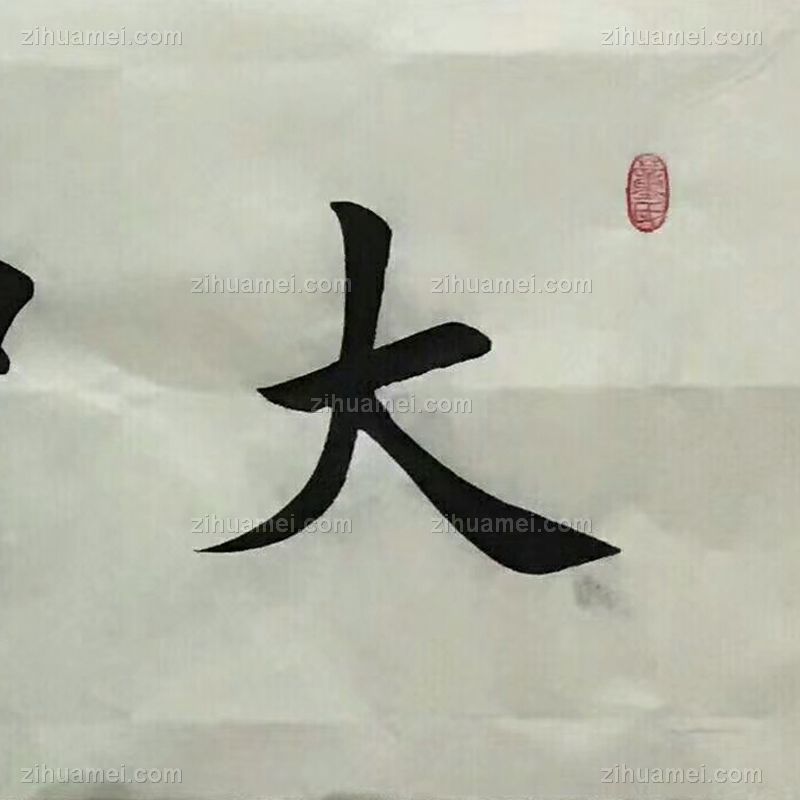 zihuamei.com zihuamei.com
zihuamei.com zihuamei.com
大
zihuamei.com
zihuamei.com zihuamei.com
zihuamei.com zihuamei.com